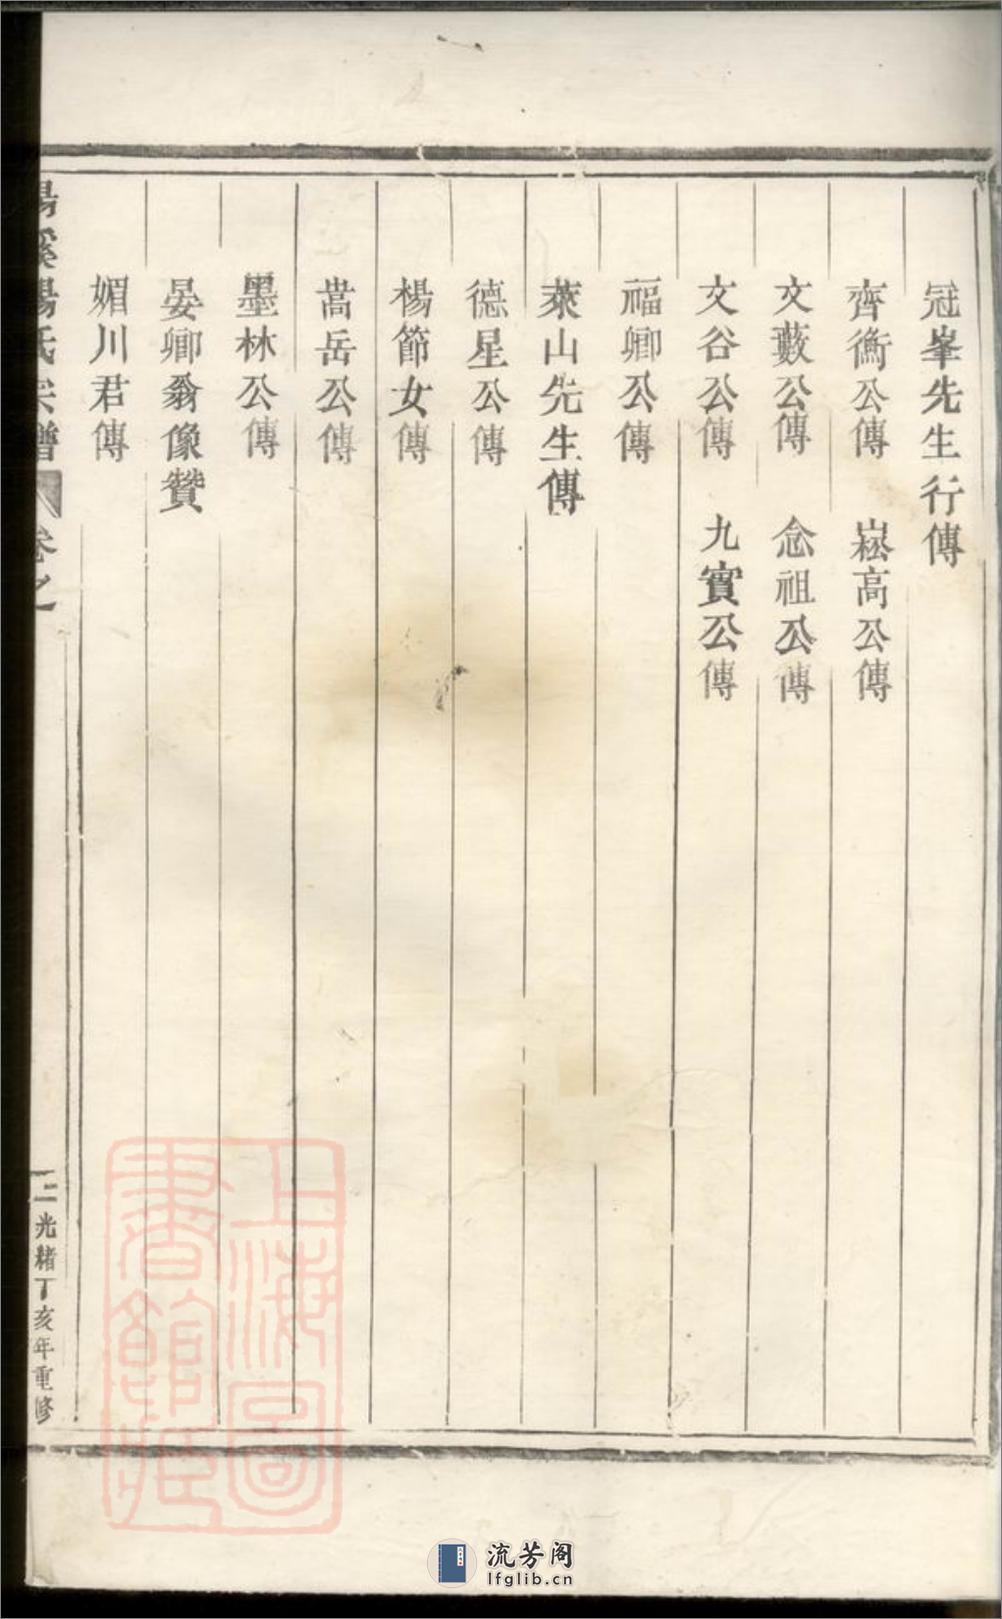 冠峯先生行傳
齊衡公傳　崧高公傳
文藪公傳　念祖公傳
文谷公傳　九實公傳
福卿公傳
萊山先生傳
德星公傳
楊節女傳
嵩岳公傳
墨林公傳
晏卿翁像贊
媚川君傳
楊氏宗譜 卷之
二 光緒丁亥年重修
上海圖書館藏
流芳阁
lfglib.cn